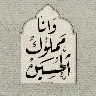 وانا
مملوك
الحسين